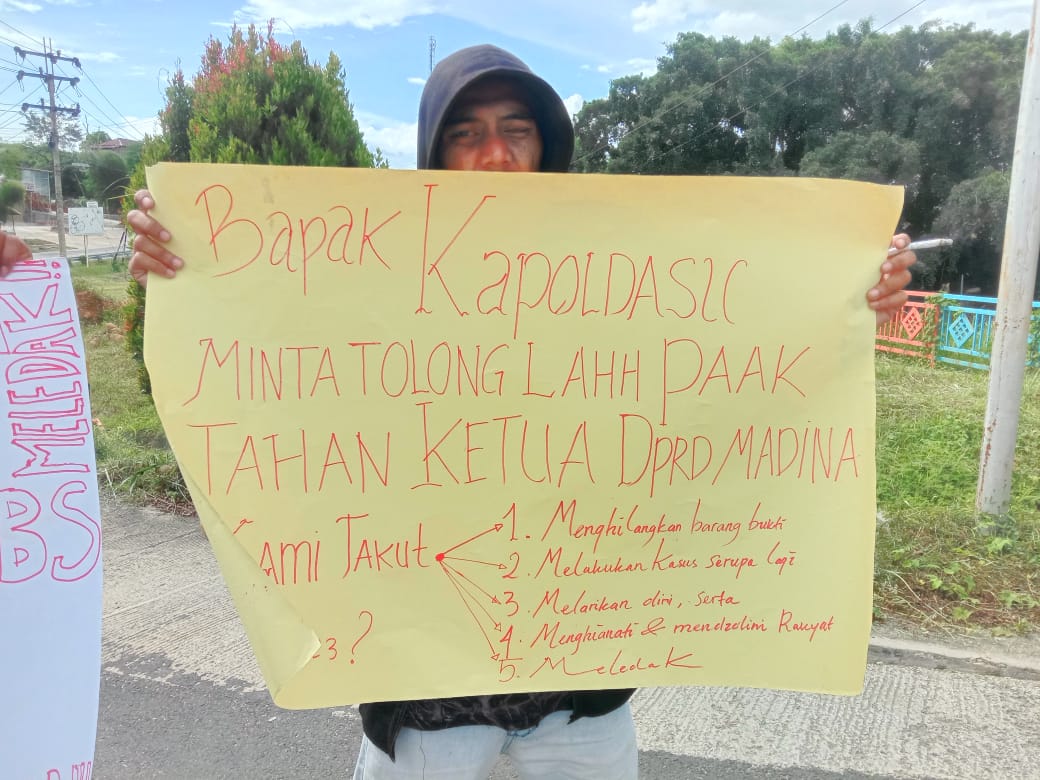 Bapak KapOLDASU
MINTA TOLONG LAHH PAAK
TAHAN KETUA DPRD MADINA
AMI TAKUT
1. Menghilangkan barang bukti
2. Melakukan Kasus serupa lagi
3. Melarikan diri, serta
4. Menghianati & mendzolimi Rakyat
5. Meledak
?
MELEDAK!!
BS